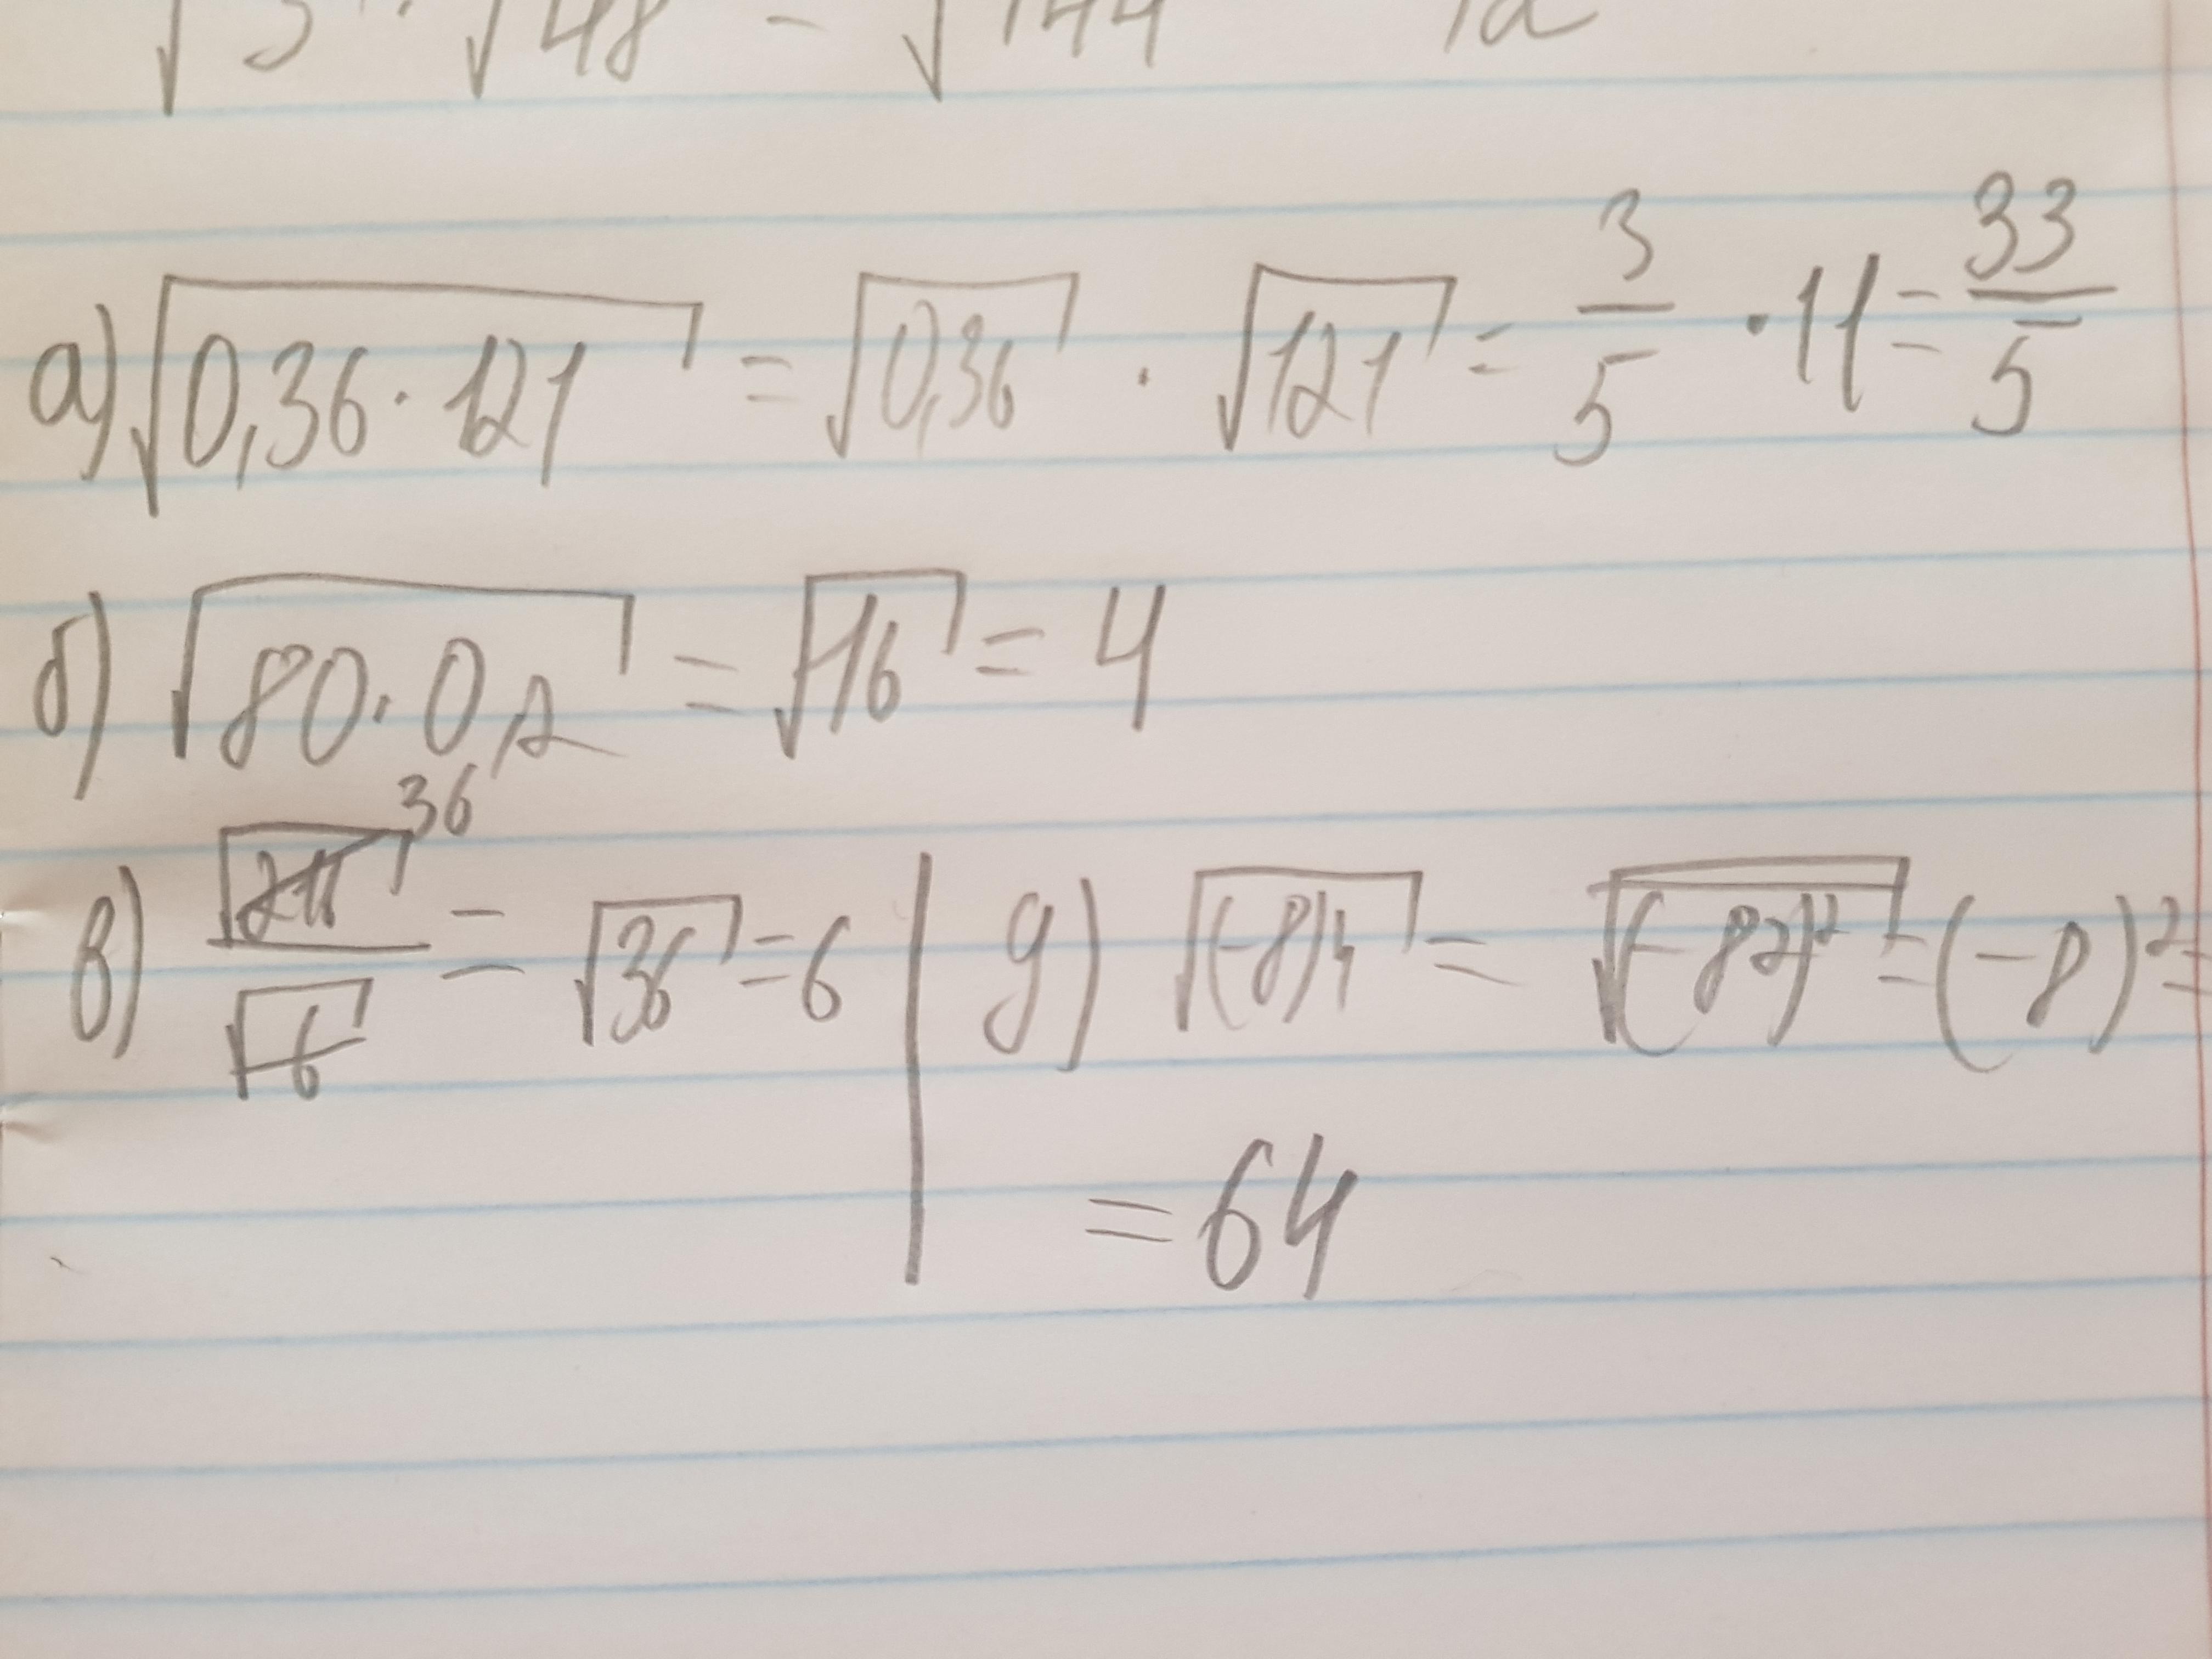 √3 · √48 = √144 12
а) √0,36 · 121 = √0,36 · √121 = 3/5 · 11 = 33/5
б) √80 · 0,2 = √16 = 4
36
в) √6 = √36 = 6 | g) √(-8)4 = √(-82)² = (-8)² =
= 64